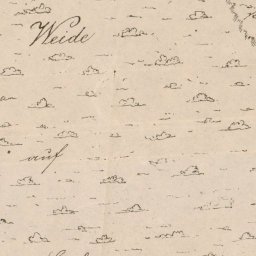 Weide
auf